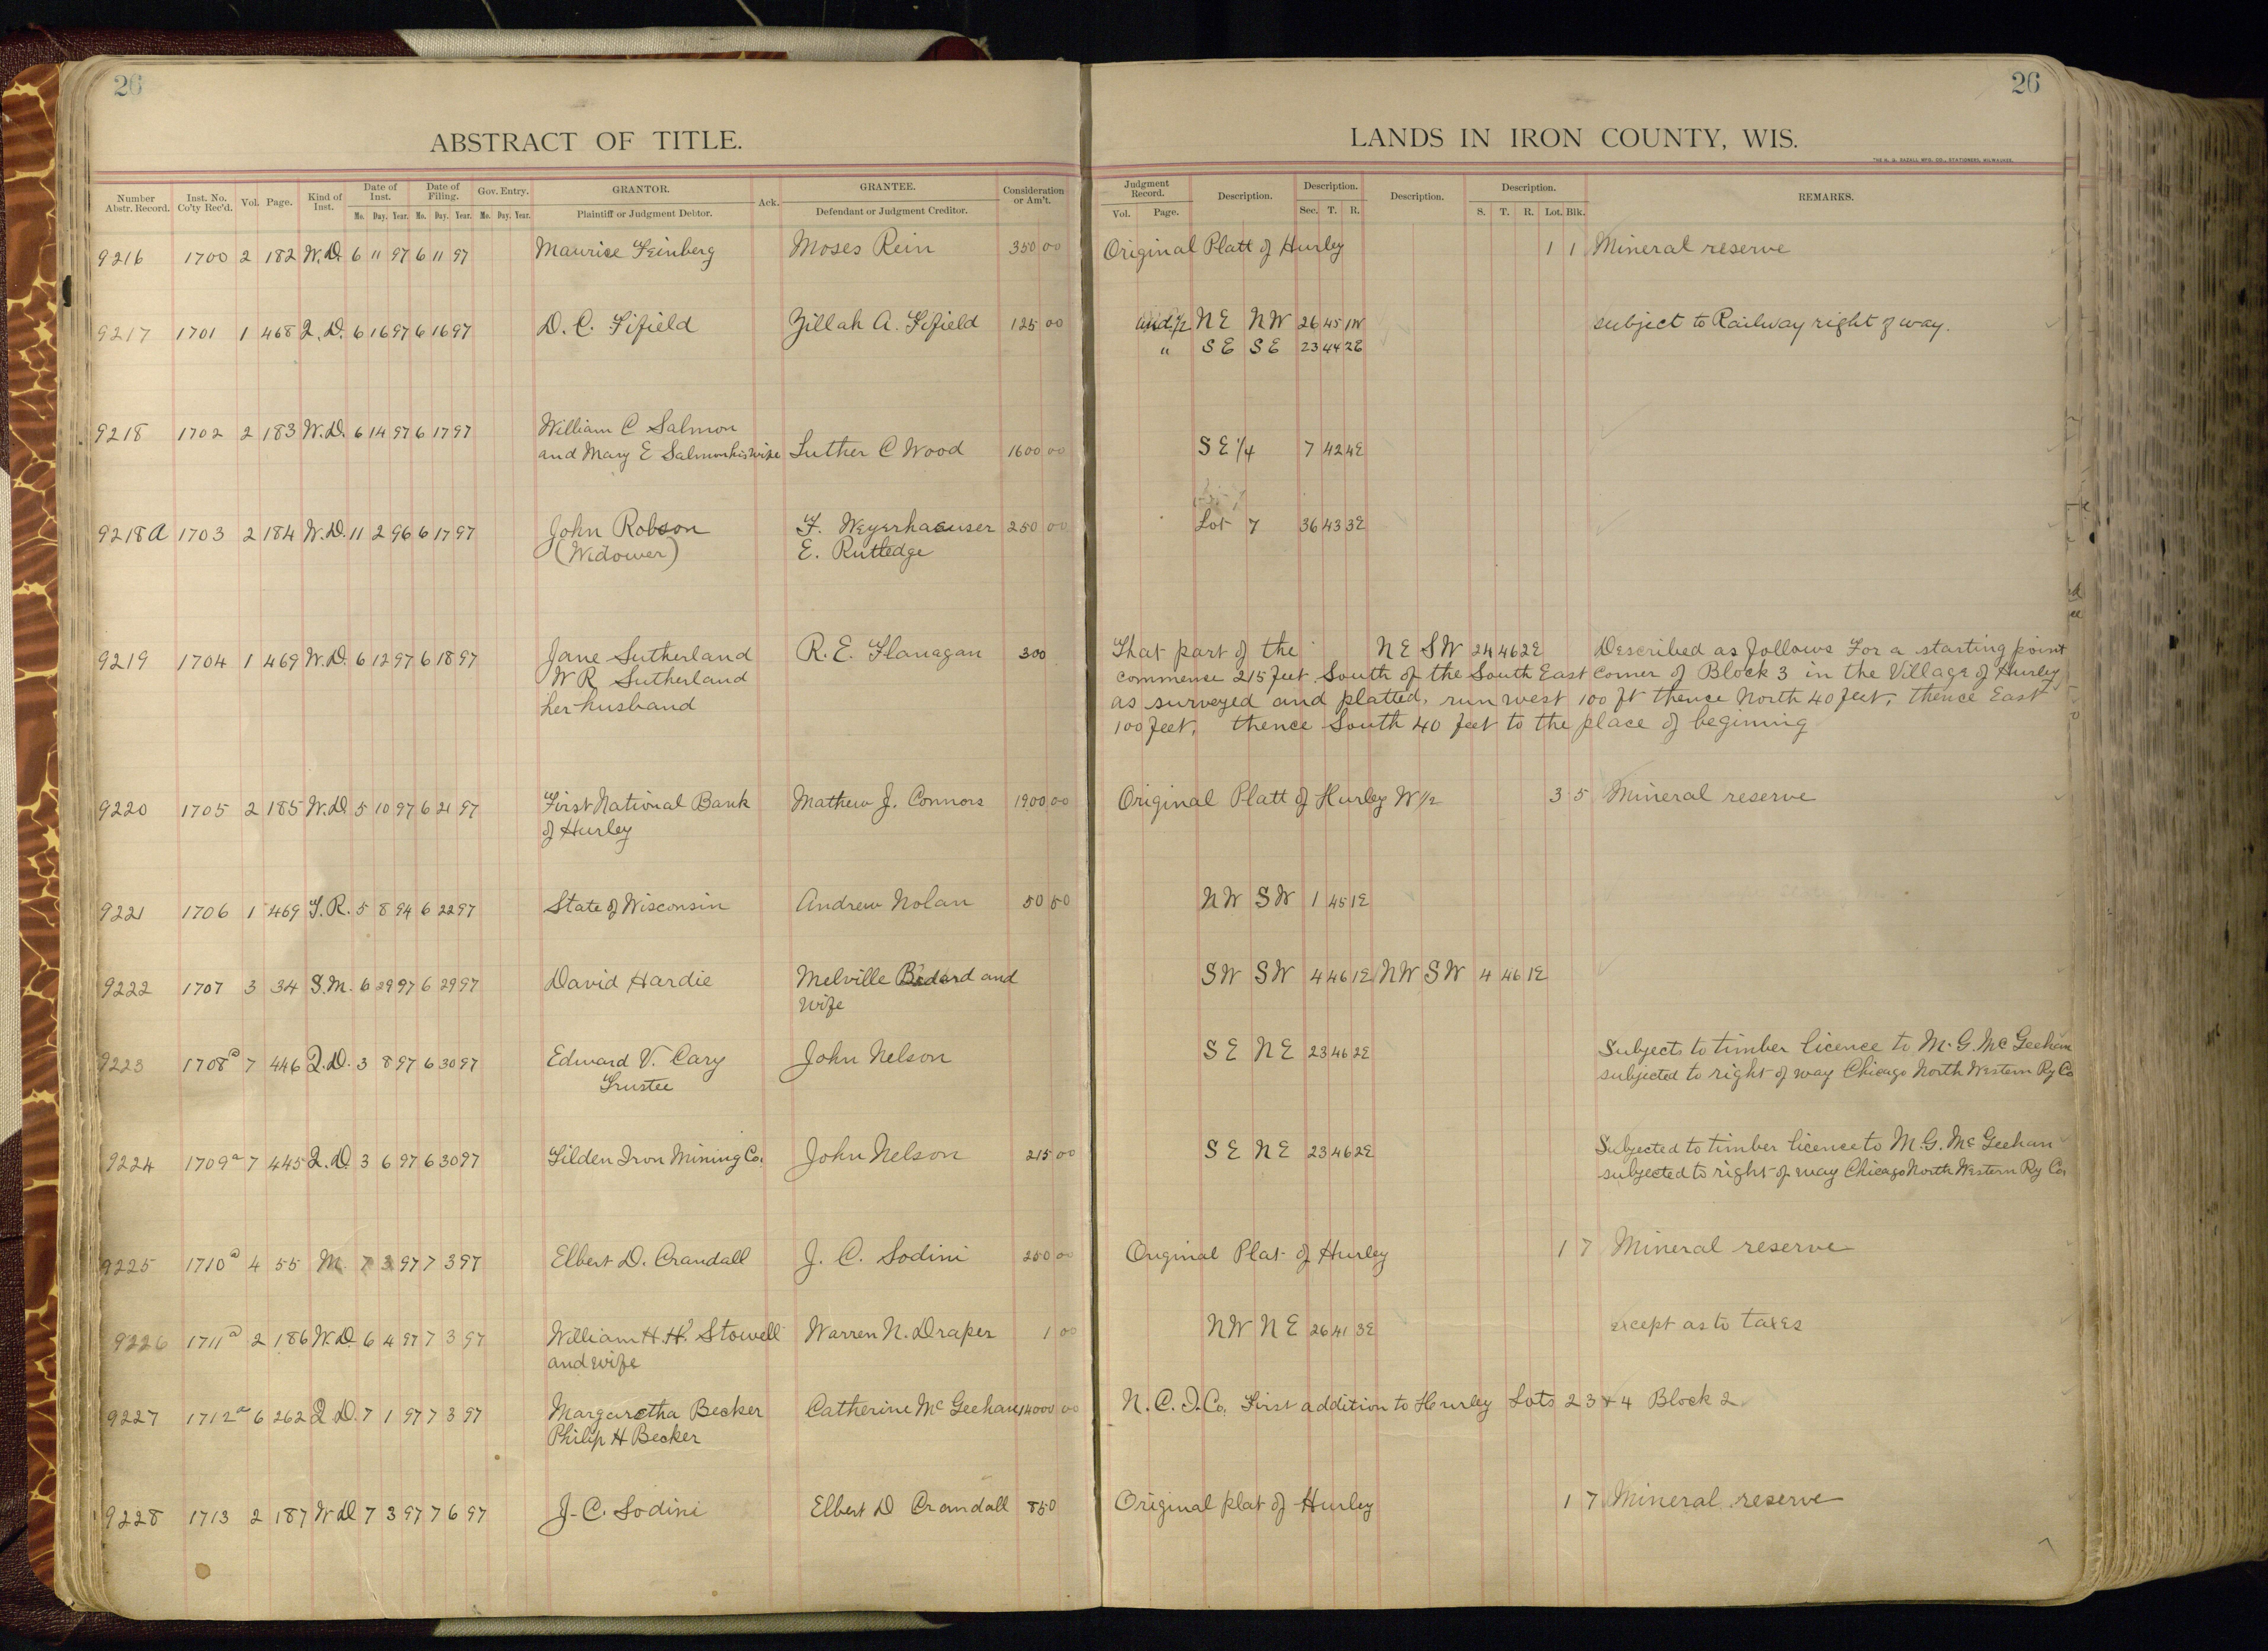 26
26
ABSTRACT OF TITLE.
LANDS IN IRON COUNTY, WIS.
Number Abstr. Record. Inst. No. Co'ty Rec'd. Vol. Page. Kind of Inst. Date of Inst. Mo. Day. Year. Date of Filing. Mo. Day. Year. Gov. Entry. Mo. Day. Year. GRANTOR. Plaintiff or Judgment Debtor. Ack. GRANTEE. Defendant or Judgment Creditor. Consideration or Am't. Judgment Record. Vol. Page. Description. Description. Sec. T. R. Description. Description. S. T. R. Lot. Blk. REMARKS.
9216 1700 2 182 W.D. 6 11 97 6 11 97 Maurice Feinberg Moses Rein 350 00 Original Platt of Hurley 1 1 Mineral reserve
9217 1701 1 468 Q.D. 6 16 97 6 16 97 D. C. Fifield Zillah A. Fifield 125 00 und 1/2 NE NW 26 45 1W subject to Railway right of way.
" SE SE 23 44 2E
9218 1702 2 183 W.D. 6 14 97 6 17 97 William C Salmon
and Mary E Salmon his wife Luther C Wood 1600 00 SE 1/4 7 42 4E
9218a 1703 2 184 W.D. 11 2 96 6 17 97 John Robson F. Weyerhaeuser 250 00 Lot 7 36 43 3E
(Widower) E. Rutledge
9219 1704 1 469 W.D. 6 12 97 6 18 97 Jane Sutherland R. E. Flanagan 300 That part of the NE SW 24 46 2E Described as follows For a starting point
W R Sutherland commence 215 feet South of the South East Corner of Block 3 in the Village of Hurley
her husband as surveyed and platted, run west 100 ft thence North 40 feet, thence East
100 feet, thence South 40 feet to the place of beginning
9220 1705 2 185 W.D. 5 10 97 6 21 97 First National Bank Mathew J. Connors 1900 00 Original Platt of Hurley W 1/2 3 5 Mineral reserve
of Hurley
9221 1706 1 469 T.R. 5 8 94 6 22 97 State of Wisconsin Andrew Nolan 50 50 NW SW 1 45 1E
9222 1707 3 34 S.M. 6 29 97 6 29 97 David Hardie Melville Bedard and SW SW 4 46 1E NW SW 4 46 1E
wife
9223 1708a 7 446 Q.D. 3 8 97 6 30 97 Edward V. Cary John Nelson SE NE 23 46 2E Subjects to timber licence to M. G. McGeehan
Trustee subjected to right of way Chicago North Western Ry Co
9224 1709a 7 445 Q.D. 3 6 97 6 30 97 Tilden Iron Mining Co. John Nelson 215 00 SE NE 23 46 2E Subjected to timber licence to M. G. McGeehan
subjected to right of way Chicago North Western Ry Co.
9225 1710a 4 55 M. 7 3 97 7 3 97 Elbert D. Crandall J. C. Sodini 250 00 Original Plat of Hurley 1 7 Mineral reserve
9226 1711a 2 186 W.D. 6 4 97 7 3 97 William H. H. Stowell Warren N. Draper 1 00 NW NE 26 41 3E except as to taxes
and wife
9227 1712a 6 262 Q.D. 7 1 97 7 3 97 Margaretha Becker Catherine McGeehan 14000 00 N. C. I. Co. First addition to Hurley Lots 2 3 + 4 Block 2
Philip H Becker
9228 1713 2 187 W.D. 7 3 97 7 6 97 J. C. Sodini Elbert D Crandall 850 Original plat of Hurley 1 7 Mineral reserve